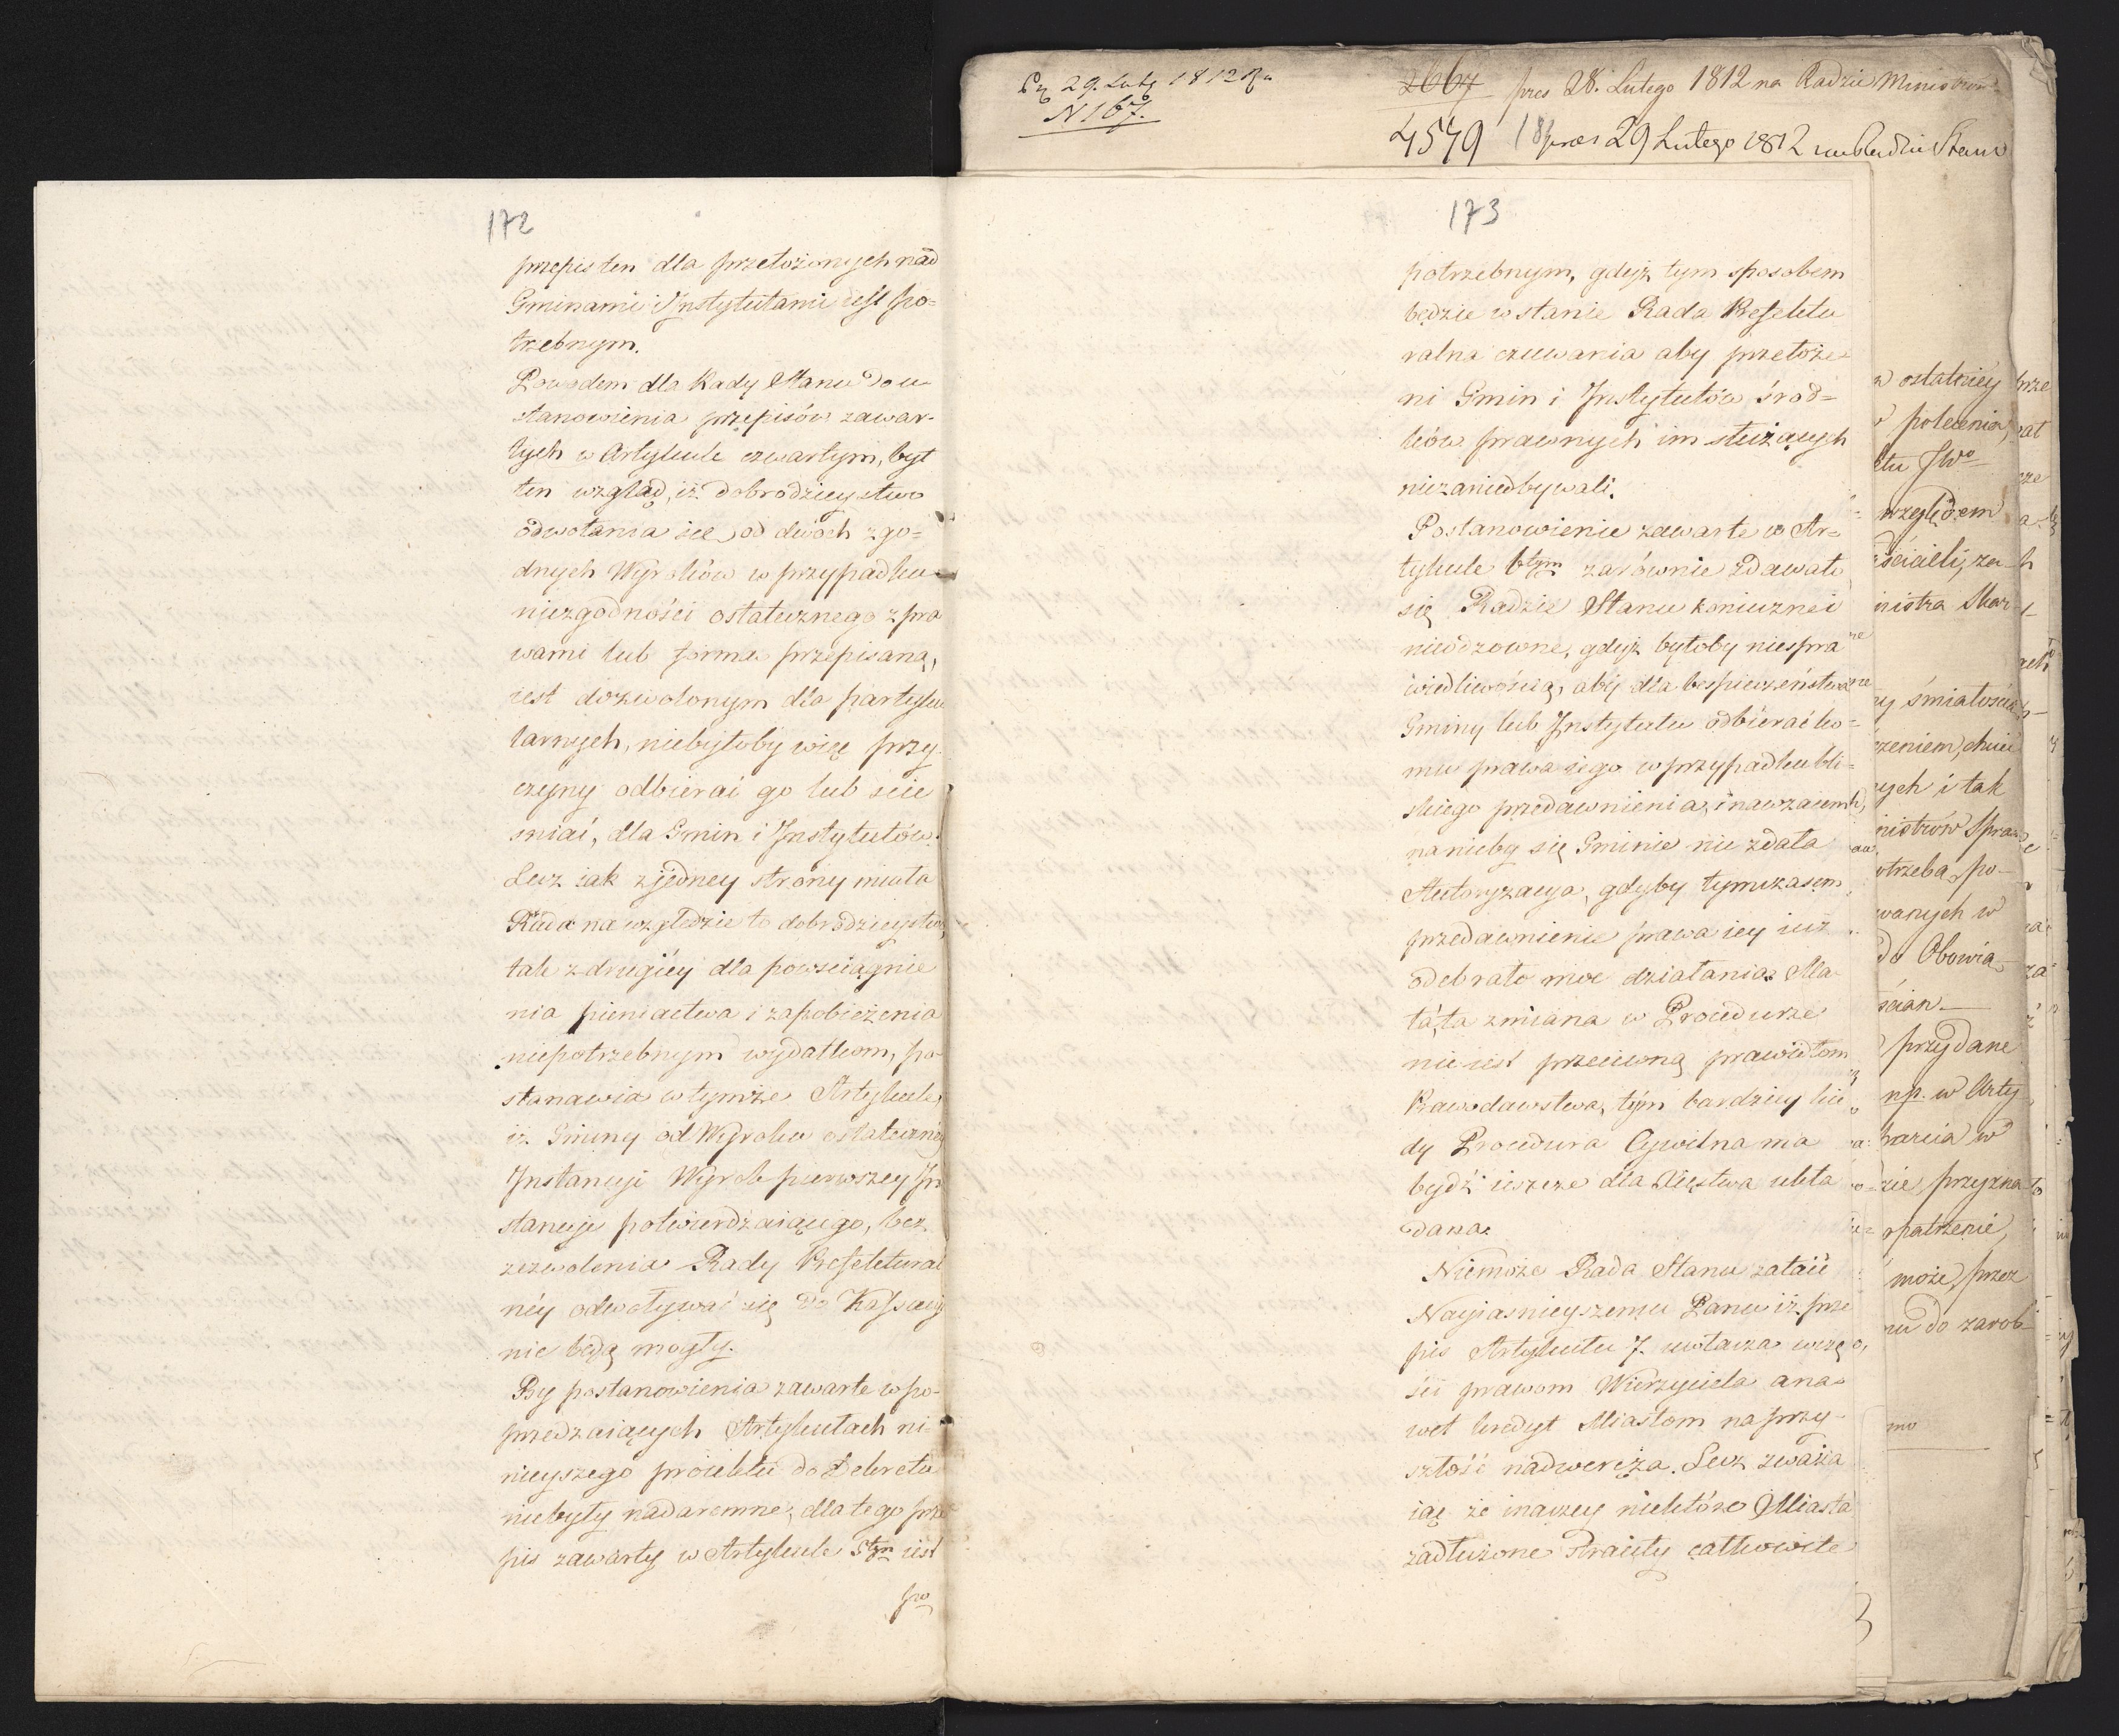 172
przepis ten dla przełożonych nad
Gminami i Instytutami iest po=
trzebnym.
Powodem dla Rady Stanu do u
stanowienia przepisów zawar-
tych w Artykule czwartym, był
ten wzgląd, iż dobrodzieystwo
odwołania się od dwóch zgo=
dnych Wyroków w przypadku
niezgodności ostatecznego z pra
wami lub formą przepisaną,
iest dozwolonym dla partyku
larnych, niebyłoby więc przy
czyny odbierać go lub ście
sniać, dla Gmin i Instytutów.
Lecz iak z jedney strony miała
Rada na względzie to dobrodzieystwo,
tak z drugiéy dla powsciągnie
nia pieniactwa i zapobieżenia
niepotrzebnym wydatkom, po
stanawia w tymże Artykule,
iż Gminy od Wyroku ostateczney
Instancyi Wyrok pierwszey In
stancyi potwierdzaiącego, bez
zezwolenia Rady Prefektural
néy odwoływać się do Kassacyi
nie będą mogły.
By postanowienia zawarte w po-
przedzaiących Artykułach ni
nieyszego proiektu do Dekretu
niebyły nadaremne, dla tego prze
pis zawarty w Artykule 5tym iest
po
Pr 29. Lut 1812 R.
N 167.
2667 pres 28. Lutego 1812 na Radzie Ministrów
4579 pres 29 Lutego 1812 na Radzie Stanu
173
potrzebnym, gdyż tym sposobem
będzie w stanie Rada Prefektu
ralna czuwania aby przełoże
ni Gmin i Instytutów środ=
ków prawnych im służących
niezaniedbywali.
Postanowienie zawarte w Ar=
tykule 6tym zarównie zdawało
się Radzie Stanu koniecznei
nieodzowne, gdyż byłoby niespra
wiedliwością, aby dla bespieczeństwa
Gminy lub Instytutu odbierać ko=
mu prawa jego w przypadku bli=
skiego przedawnienia, i nawzaiem
nanicby się Gminie nie zdała
Autoryzacya, gdyby tymczasem
przedawnienie prawa iey iuż
odebrało moc działania. Ma
ła, ta zmiana w Procedurze
nie iest przeciwną prawidłom
Prawodawstwa, tym bardziey kie
dy Procedura Cywilna ma
bydź ieszcze dla Xięstwa ukła
dana.
Niemoże Rada Stanu zataić
Nayiasnieyszemu Panu iż prze
pis Artykułu 7. uwłacza wczę
ści prawom Wierzyciela a na
wet kredyt Miastom na przy-
szłość nadweręża. Lecz zważa
iąc że inaczey niektóre Miasta
zadłużone straciły całkowite
w ostatniey
polecenia
ktu JWo
względem
ścicieli, za
inistra Skar
śmiałości
żeniem, chęci
ych i tak
nistrów Spra
otrzeba, po-
wanych w
do Obowią
ścian
przydane
np. w Arty
parcia w
zie, przyzna
opatrzenie,
może, przez
nu do zarob-
mo